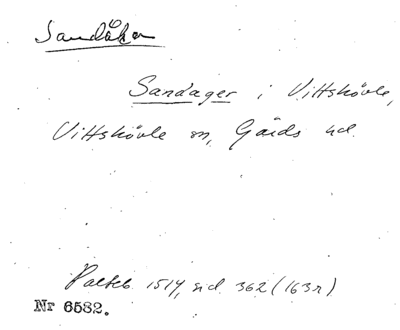 Sandåker
Sandager i Vittskövle,
Vittskövle sn, Gärds hd.
Palteb 1514, sid 362 (163r)
Nr 6582.